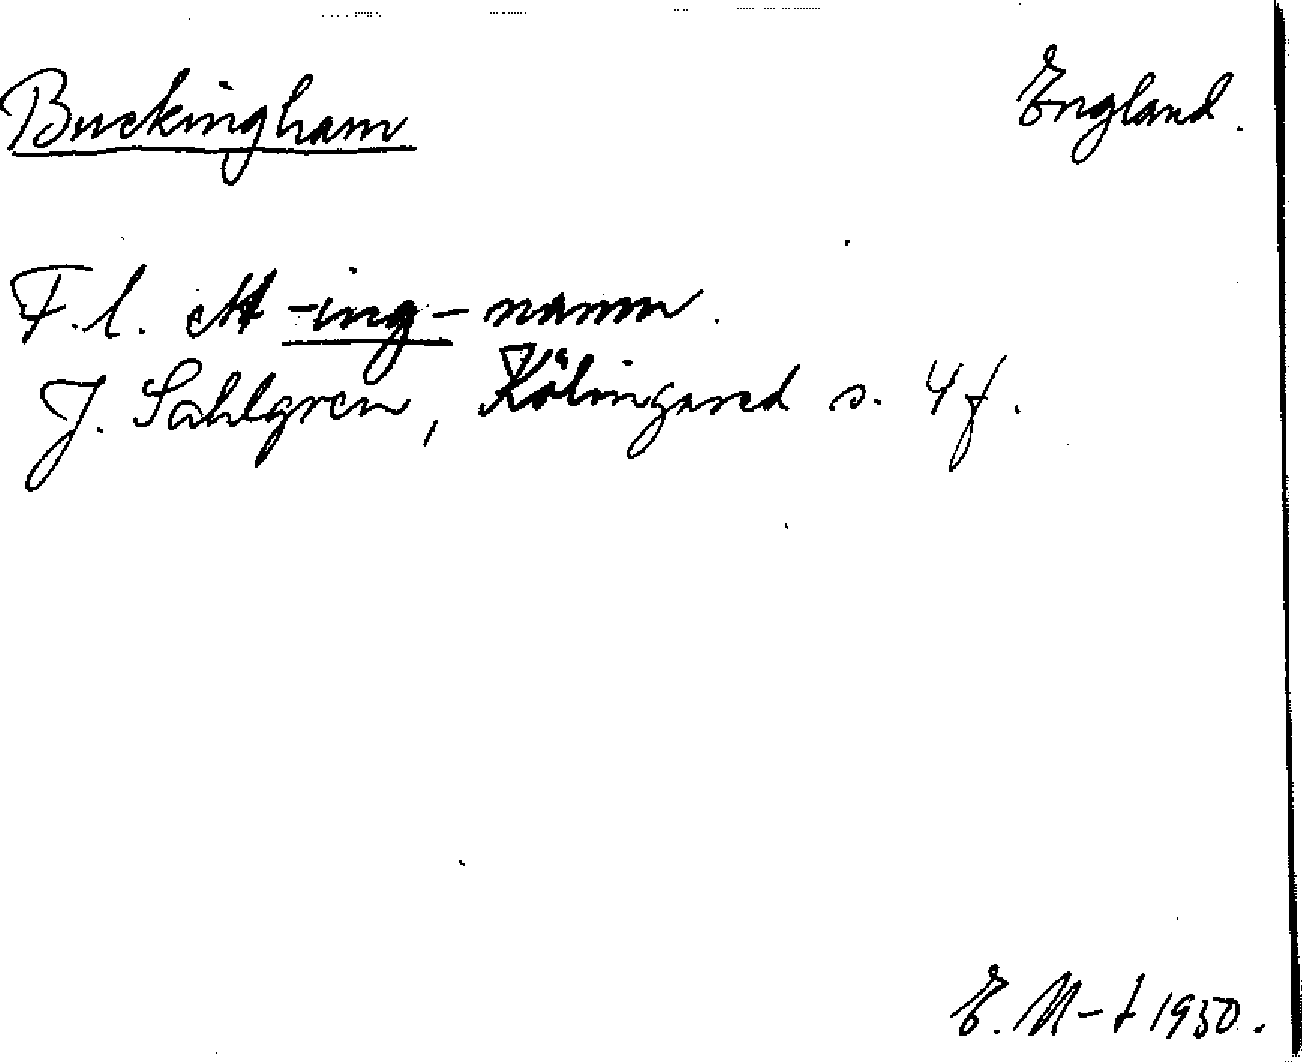 Buckingham England.
F.l. ett -ing-namn.
J. Sahlgren, Kölingared s. 4 f.
E. M-t 1930.